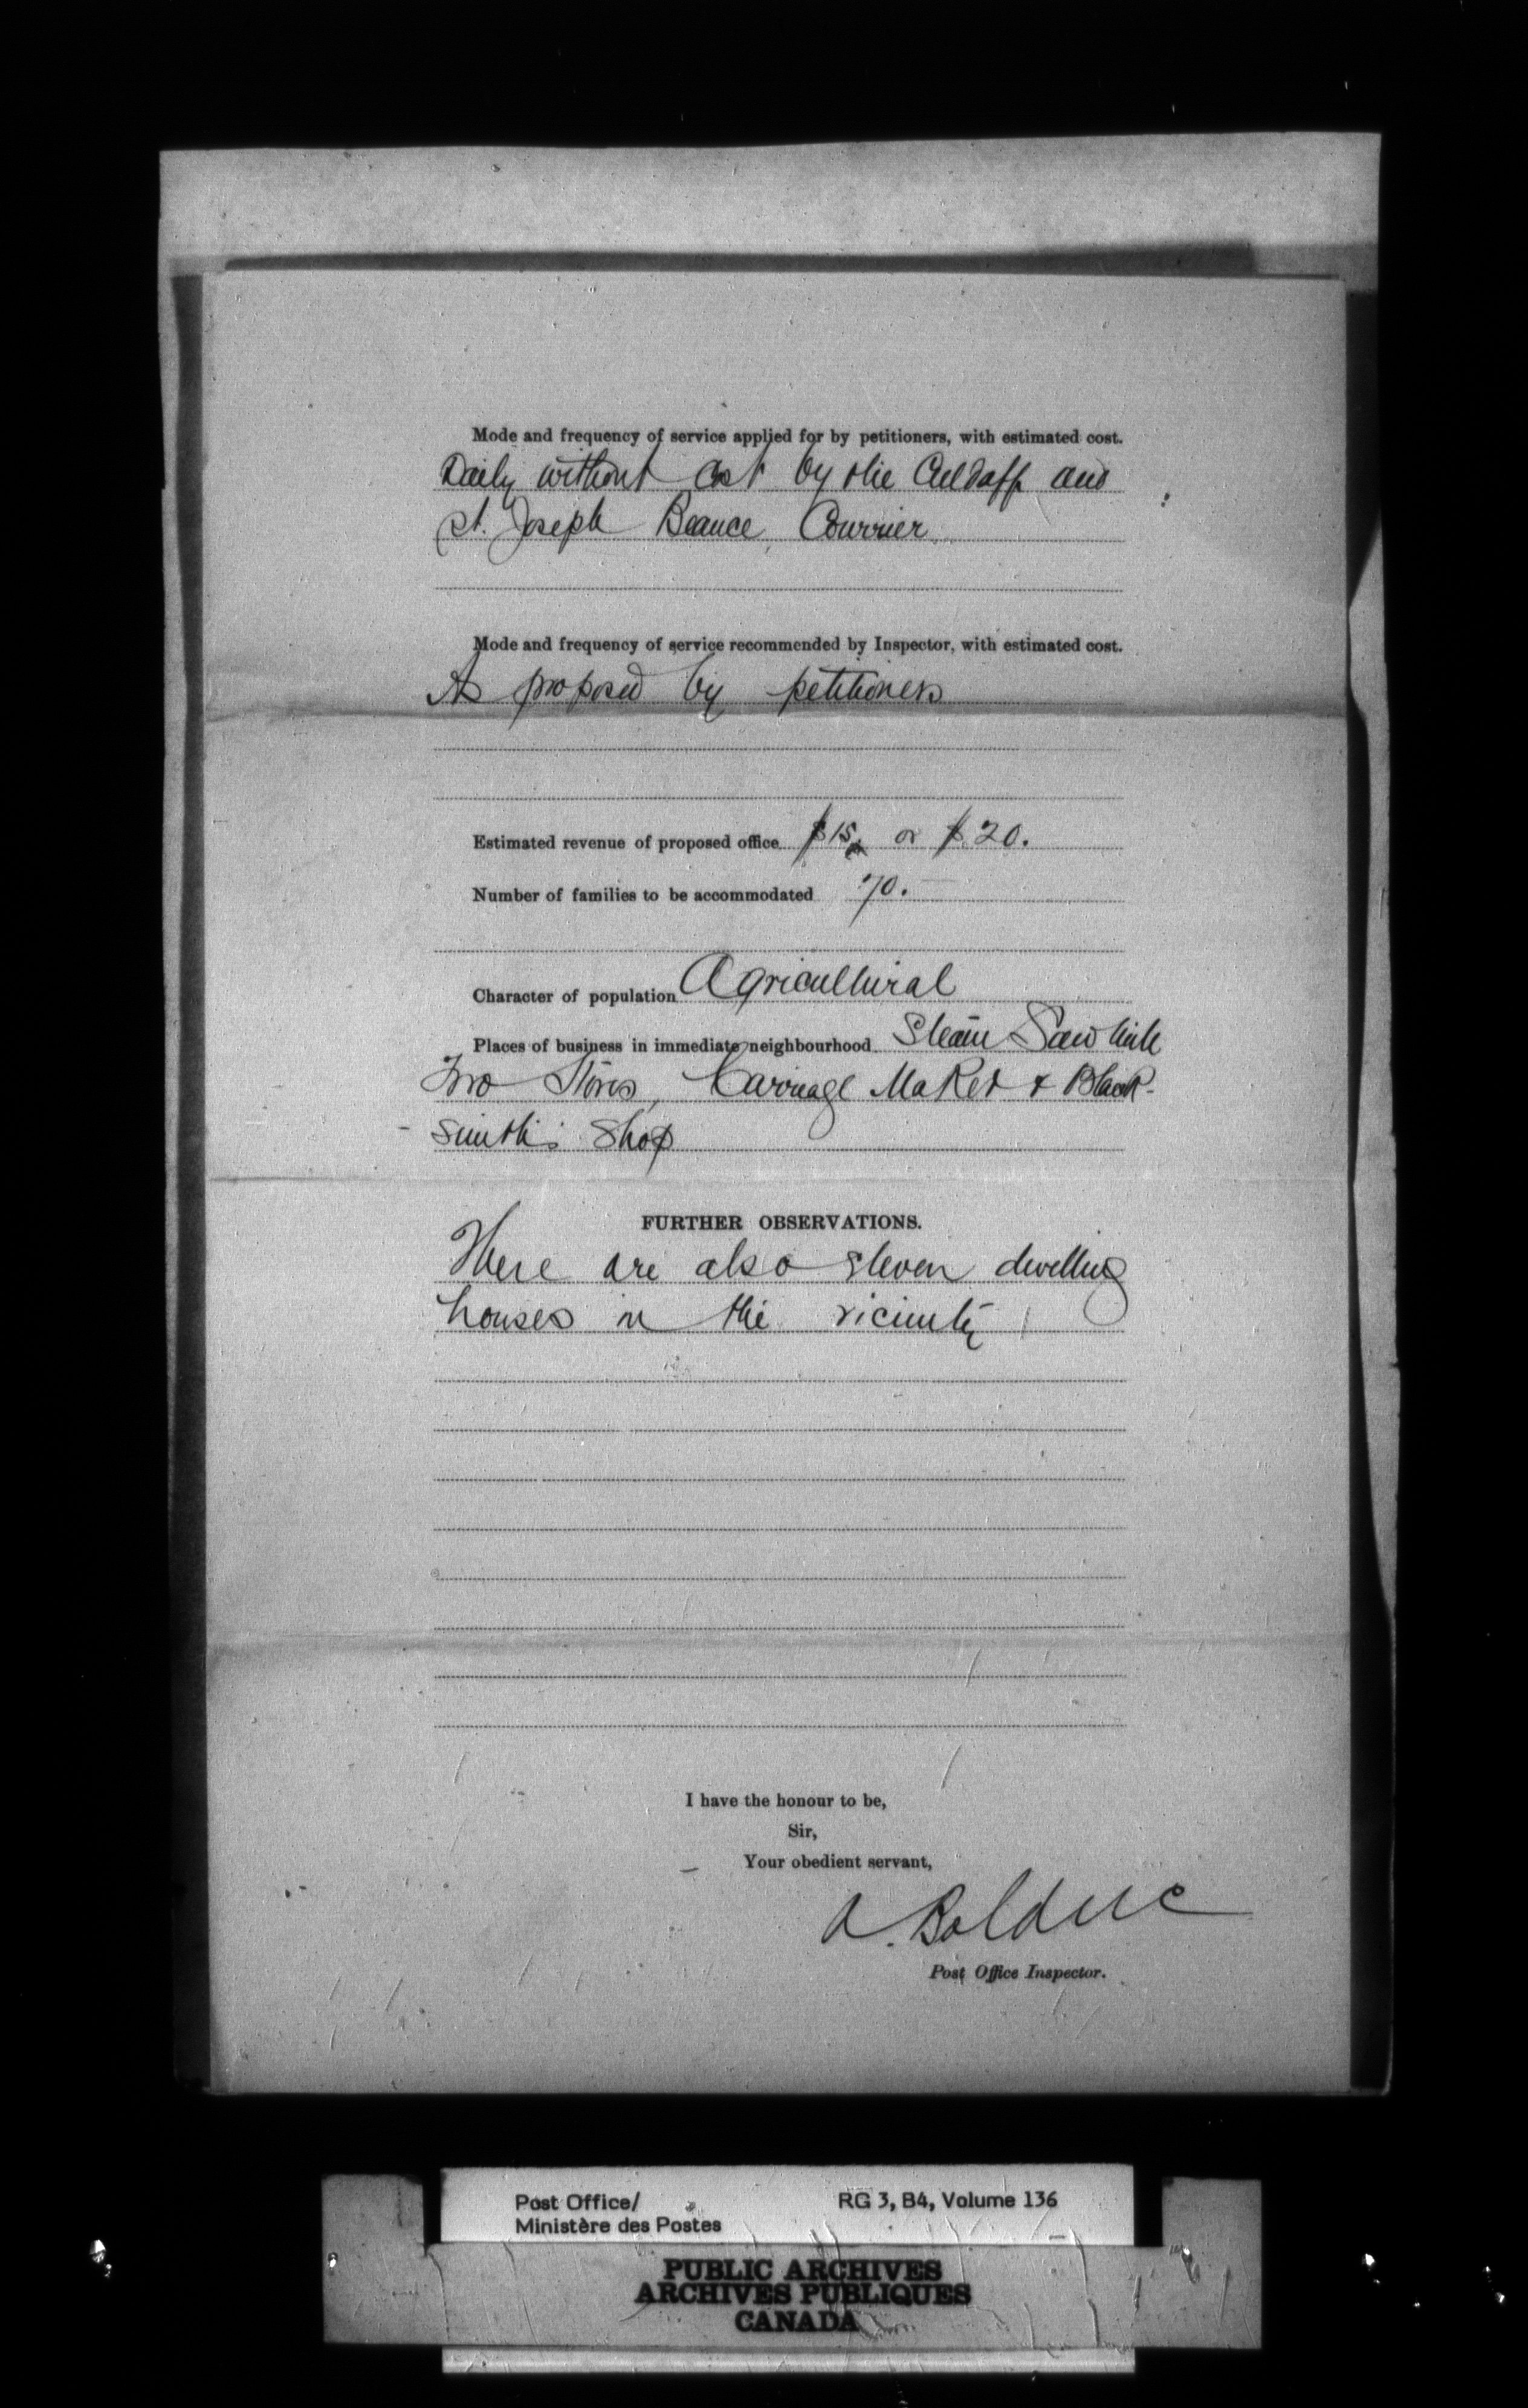 Mode and frequency of service applied for by petitioners, with estimated cost.
Daily without cost by the Culdaff and
St. Joseph Beauce, Courrier
Mode and frequency of service recommended by Inspector, with estimated cost.
As proposed by petitioners
Estimated revenue of proposed office $15 or $20.
Number of families to be accommodated 70.
Character of population Agricultural
Places of business in immediate neighbourhood Steam Saw Mill
Two Stores, Carriage Maker & Black-
smith's Shop
FURTHER OBSERVATIONS.
There are also eleven dwelling
houses in the vicinity
I have the honour to be,
Sir,
Your obedient servant,
A. Bolduc
Post Office Inspector.
Post Office/ RG 3, B4, Volume 136
Ministère des Postes
PUBLIC ARCHIVES
ARCHIVES PUBLIQUES
CANADA